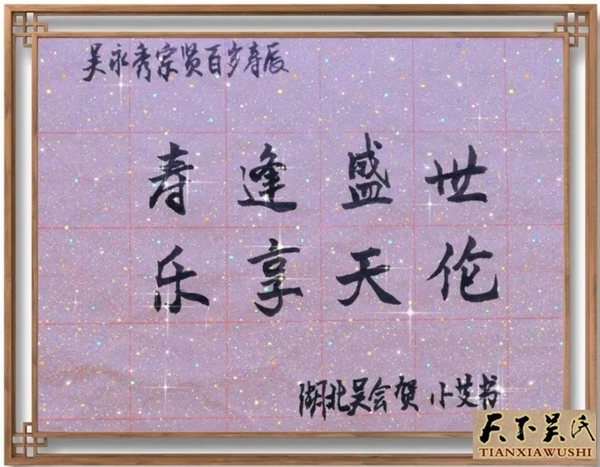 吴永秀宗贤百岁寿辰
寿逢盛世
乐享天伦
湖北吴会贺 小艾书
天下吴氏
TIANXIAWUSHI